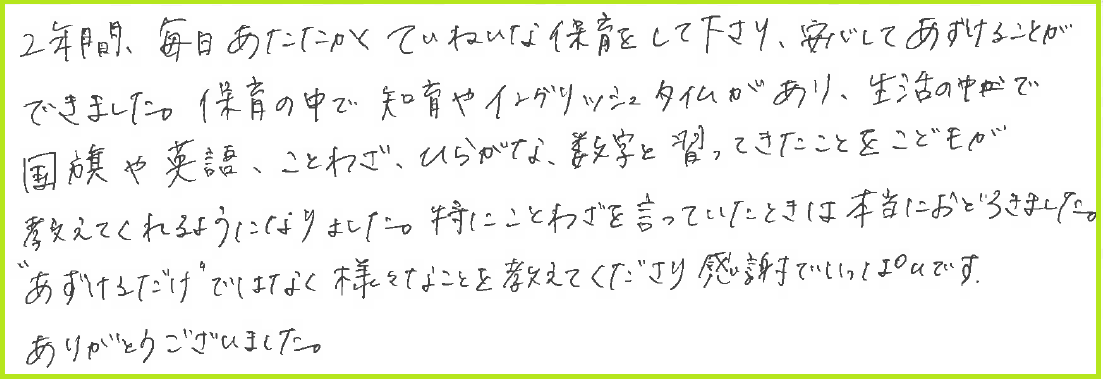 2年間、毎日あたたかくていねいな保育をして下さり、安心してあずけることが
できました。保育の中で知育やイングリッシュタイムがあり、生活の中で
国旗や英語、ことわざ、ひらがな、数字と習ってきたことをこどもが
教えてくれるようになりました。特にことわざを言っていたときは本当におどろきました。
"あずけるだけ"ではなく様々なことを教えてくださり感謝でいっぱいです.
ありがとうございました。